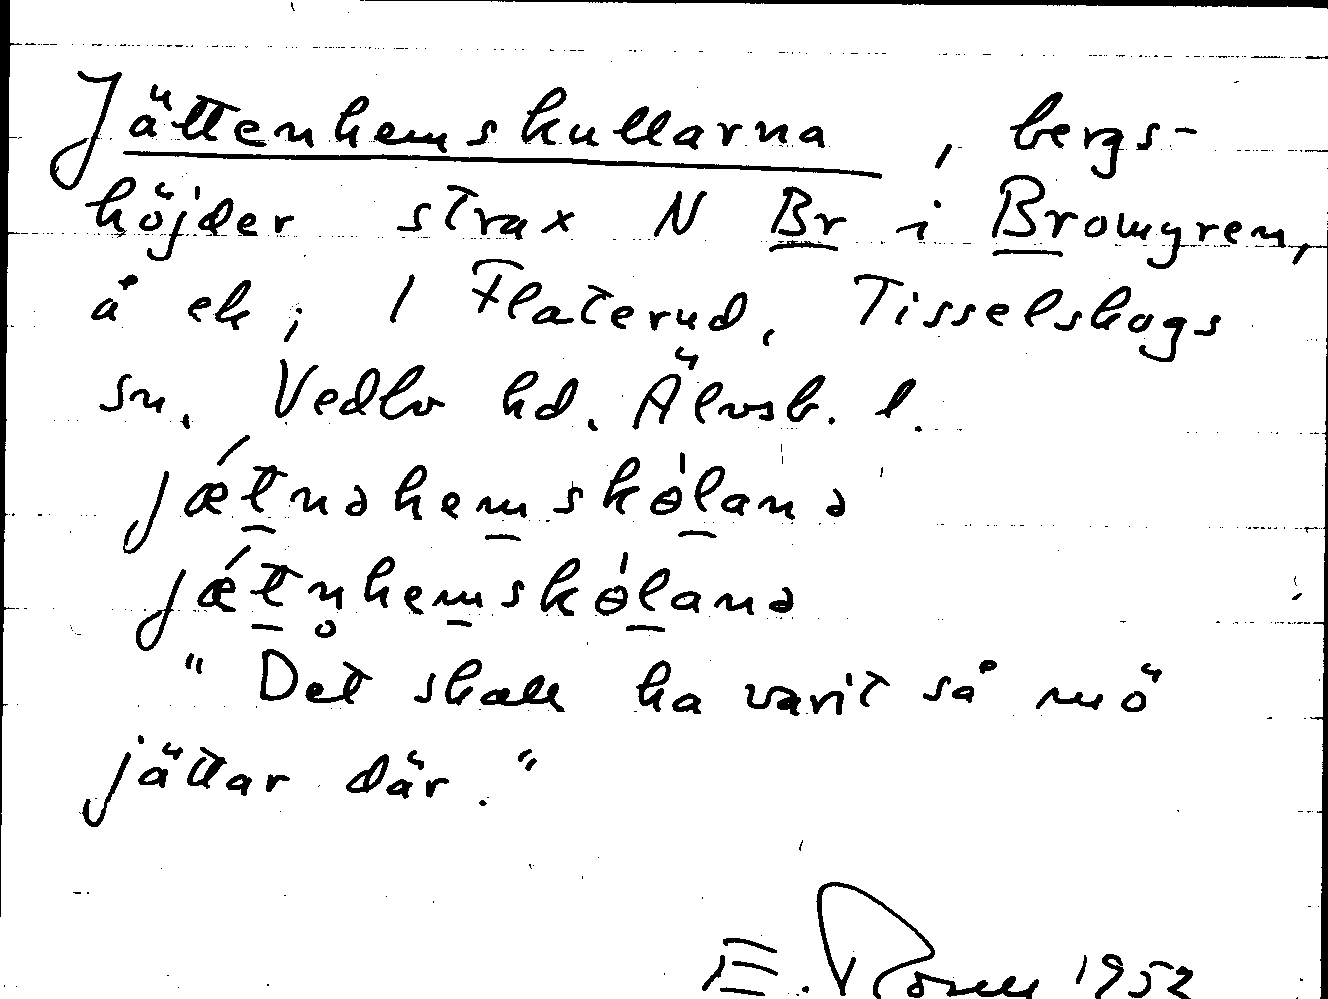 Jättenhemskullarna, bergs-
höjder strax N Br i Bromgren,
å ek; 1 Flaterud, Tisselskogs
sn. Vedbo hd. Älvsb. l.
jǽt̲nəhem̲skɵ̍l̲anə
jǽt̲n̥hem̲skɵ̍l̲anə
"Det skall ha varit så mö
jättar där."
E. 1952